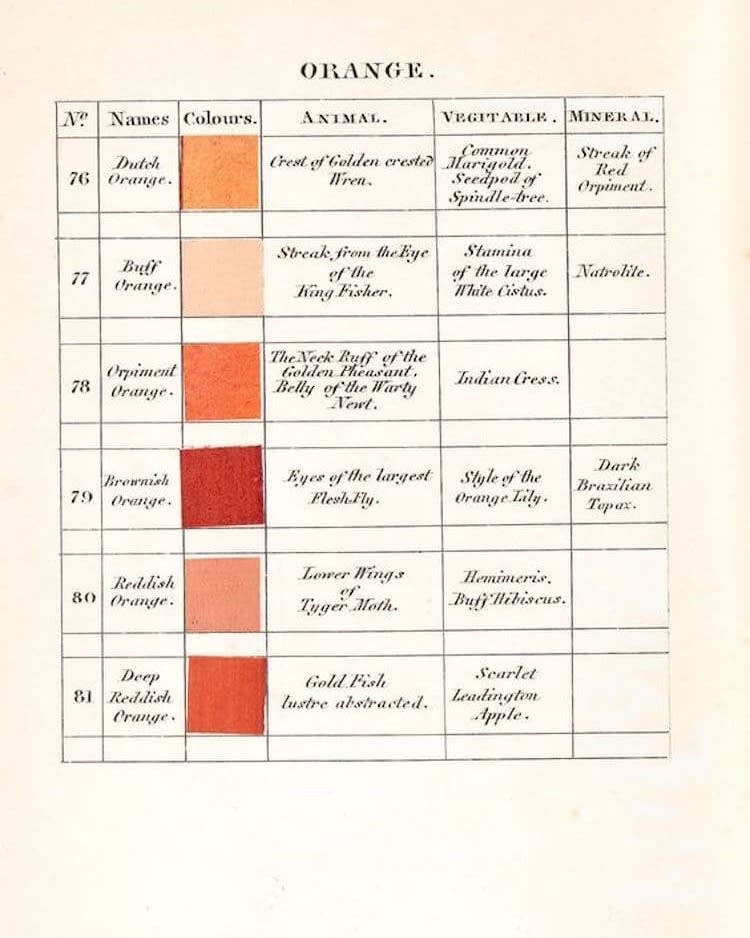 ORANGE.
Nº Names Colours. ANIMAL. VEGITABLE. MINERAL.
76
Dutch
Orange.
Crest of Golden crested
Wren.
Common
Marigold.
Seedpod of
Spindle-tree.
Streak of
Red
Orpiment.
77
Buff
Orange.
Streak from the Eye
of the
King Fisher.
Stamina
of the large
White Cistus.
Natrolite.
78
Orpiment
Orange.
The Neck Ruff of the
Golden Pheasant.
Belly of the Warty
Newt.
Indian Cress.
79
Brownish
Orange.
Eyes of the largest
Flesh Fly.
Style of the
Orange Lily.
Dark
Brazilian
Topaz.
80
Reddish
Orange.
Lower Wings
of
Tyger Moth.
Hemimeris.
Buff Hibiscus.
81
Deep
Reddish
Orange.
Gold Fish
lustre abstracted.
Scarlet
Leadington
Apple.